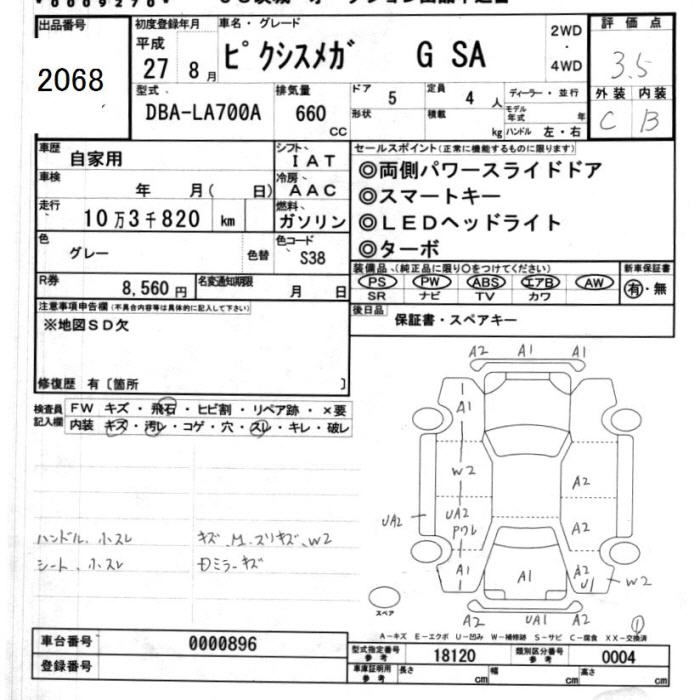 出品番号
2068
初度登録年月
平成
27 8月
車名・グレード
ピクシスメガ G SA
2WD
・
4WD
評価点
3.5
外装 内装
C B
型式
DBA-LA700A
排気量
660
CC
ドア
5
定員
4 人
形状
積載
kg
ディーラー・並行
モデル年式 年
ハンドル 左・右
車歴
自家用
シフト
IAT
車検
年 月( 日)
冷房
AAC
走行
10万3千820 km
燃料
ガソリン
色
グレー
色替
色コード
S38
R券
8,560円
名変通知期限
月 日
セールスポイント(正常に機能するものに限ります)
◎両側パワースライドドア
◎スマートキー
◎LEDヘッドライト
◎ターボ
装備品、(純正品に限り○をつけてください)
PS PW ABS エアB AW
SR ナビ TV カワ
新車保証書
有・無
後日品
保証書・スペアキー
注意事項申告欄(不具合内容等は具体的に記入して下さい)
※地図SD欠
修復歴 有〔箇所 〕
検査員
記入欄
FW キズ・飛石・ヒビ割・リペア跡・×要
内装 キズ・汚レ・コゲ・穴・スレ・キレ・破レ
ハンドル 小スレ
シート、小スレ
キズ、M.スリキズ、W2
Dミラーキズ
A2 A1 A1
A1
W2
A2
UA2
UA2
PワレA2
A1
A1
A2
U1
W2
A2 UA1 A2
スペア
①
A-キズ E-エクボ U-凹み W-補修跡 S-サビ C-腐食 XX-交換済
車台番号
0000896
登録番号
型式指定番号
参考
18120
類別区分番号
参考
0004
車庫証明用
参考
長さ cm
幅 cm
高さ cm